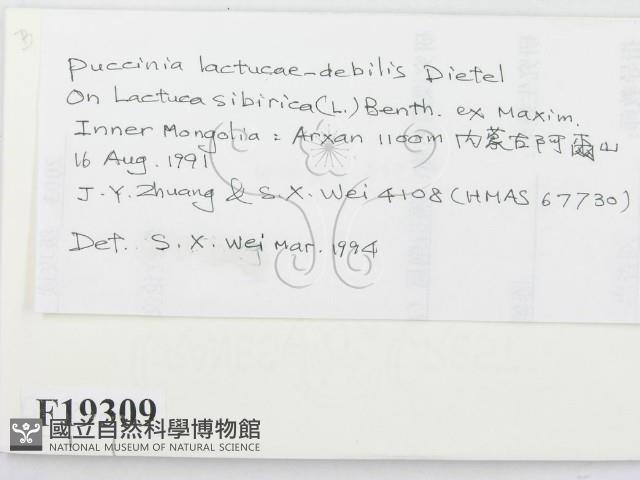 B
Puccinia lactucae-debilis Dietel
On Lactuca sibirica (L.) Benth. ex Maxim.
Inner Mongolia : Arxan 1100m 內蒙古阿爾山
16 Aug. 1991
J. Y. Zhuang & S. X. Wei 4108 (HMAS 67730)
Det. S. X. Wei Mar. 1994
F19309
國立自然科學博物館
NATIONAL MUSEUM OF NATURAL SCIENCE